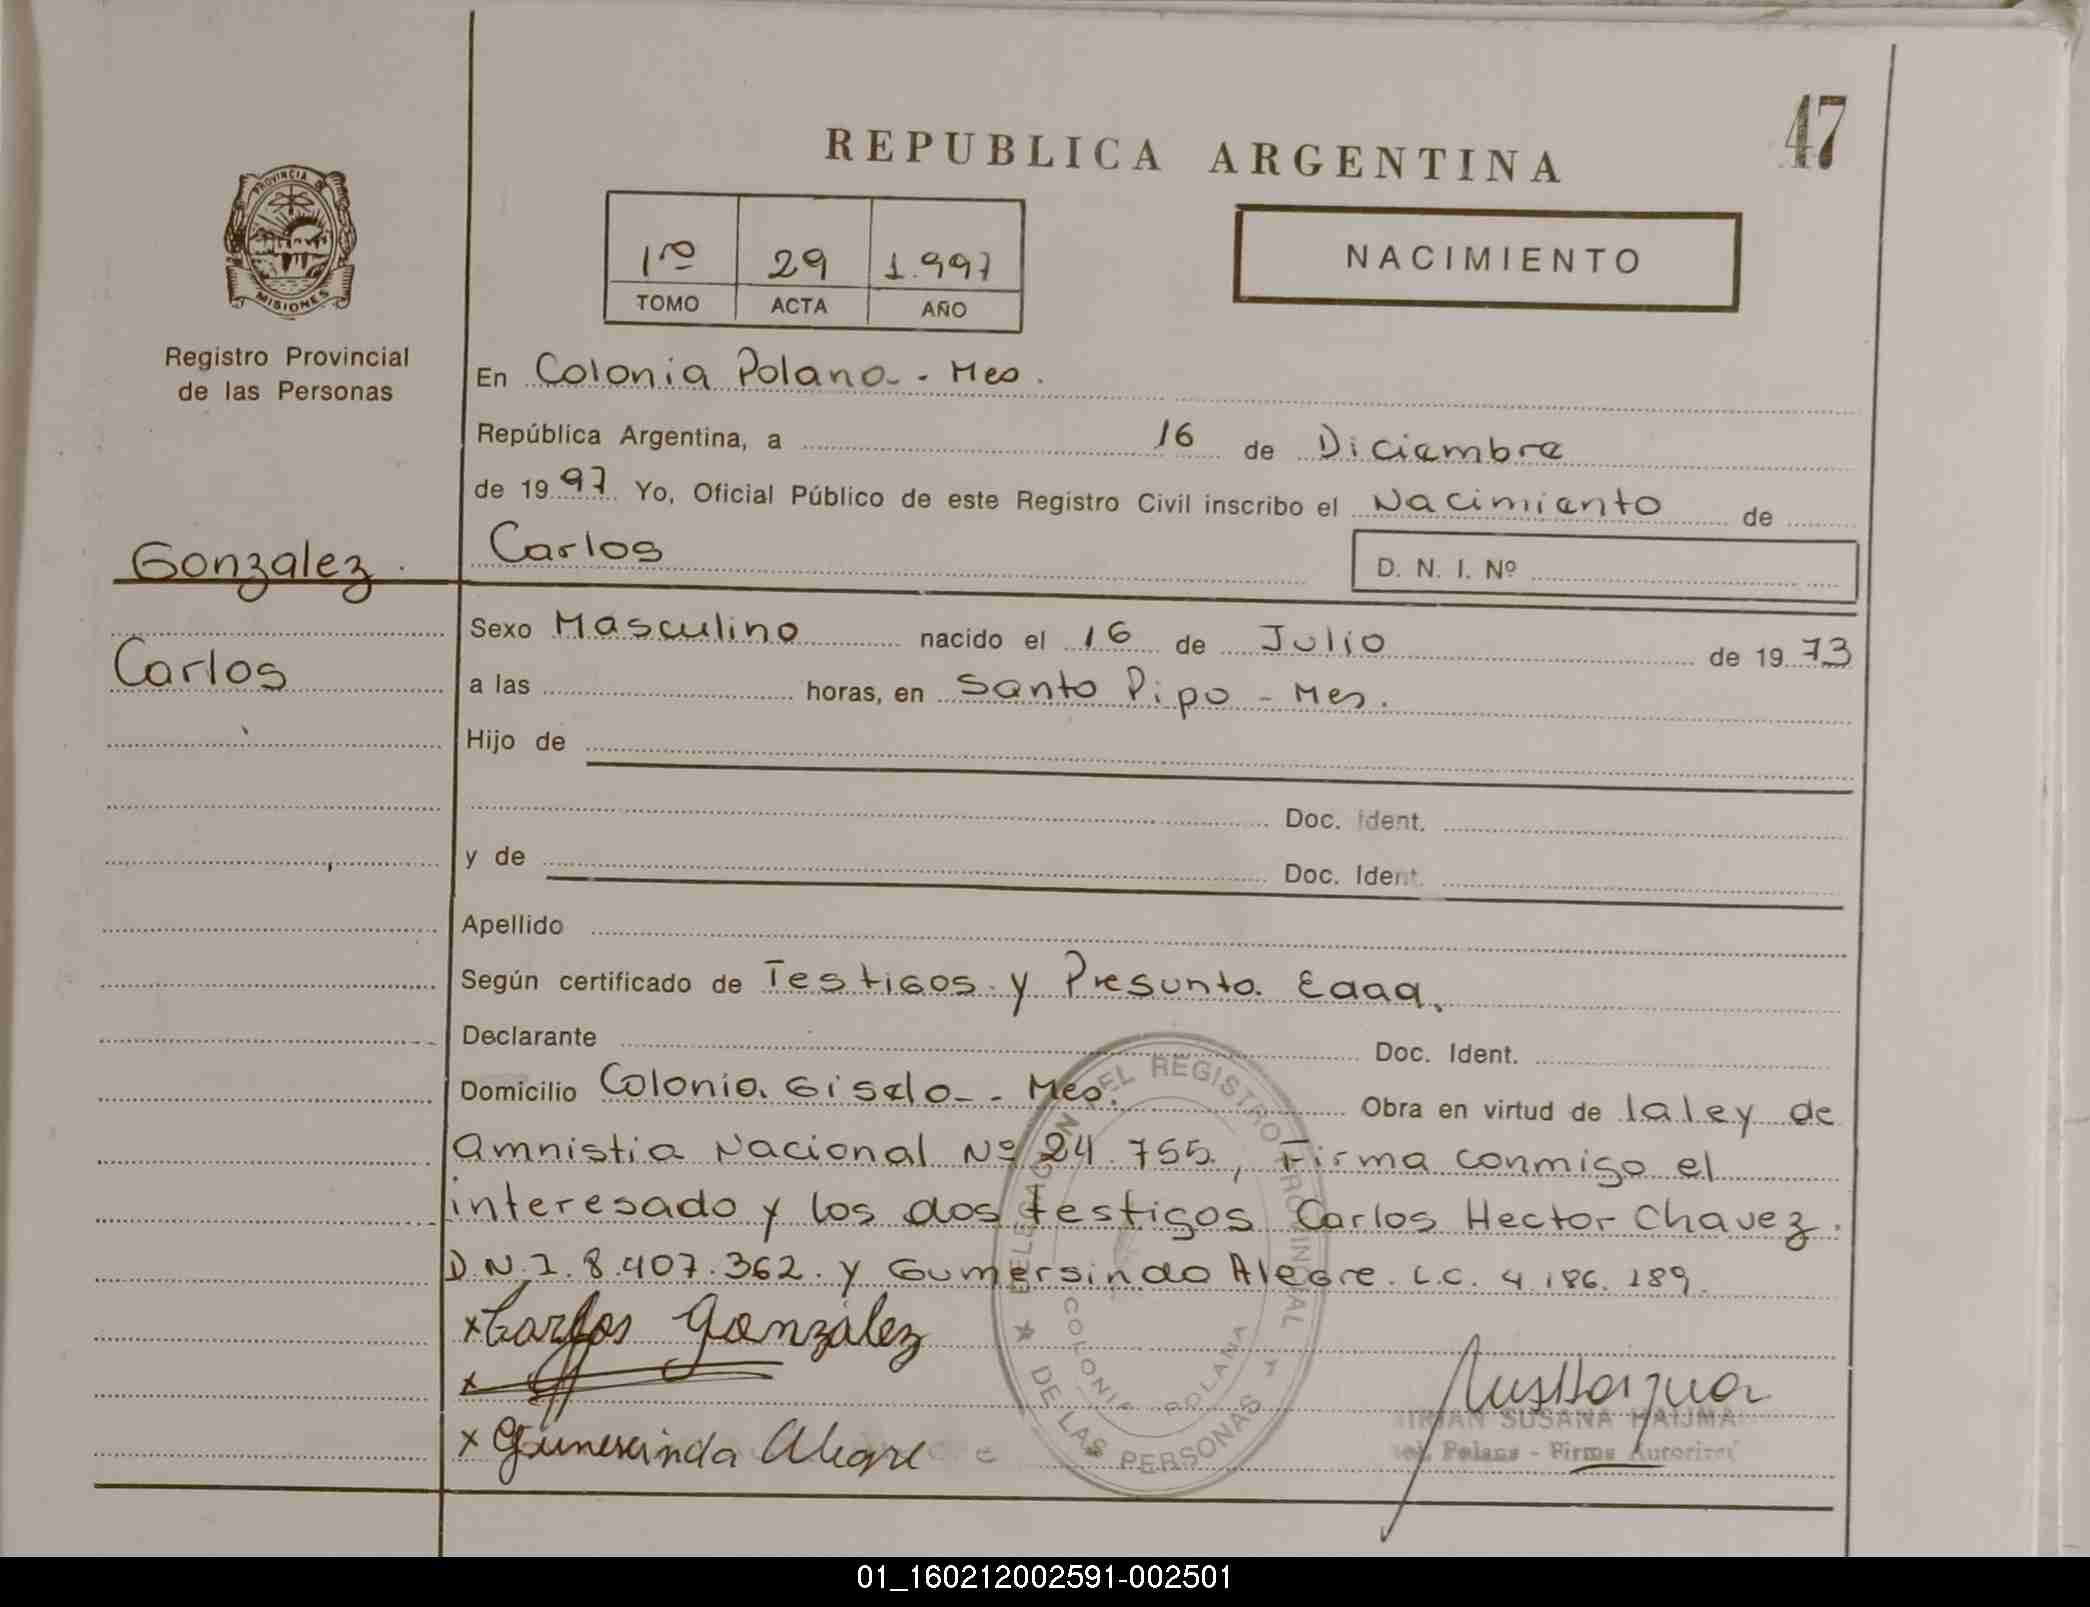 47
REPUBLICA ARGENTINA
PROVINCIA DE
MISIONES
1ro 29 1.997
TOMO ACTA AÑO
NACIMIENTO
Registro Provincial
de las Personas
En Colonia Polana - Mes.
República Argentina, a 16 de Diciembre
de 1997 Yo, Oficial Público de este Registro Civil inscribo el Nacimiento de
Gonzalez. Carlos D. N. I. Nº
Sexo Masculino nacido el 16 de Julio de 1973
Carlos
a las horas, en Santo Pipo - Mes.
Hijo de
Doc. Ident.
y de Doc. Ident.
Apellido
Según certificado de Testigos y Presunta Edad.
Declarante Doc. Ident.
Domicilio Colonia Gisela - Mes. Obra en virtud de la ley de
amnistia Nacional Nº 24.755, Firma conmigo el
interesado y los dos testigos Carlos Hector Chavez.
D.N.I. 8.407.362. y Gumersindo Alegre. L.C. 4.186.189.
x Carlos Gonzalez
x
x Gumersinda Alegre
DELEGACION DEL REGISTRO PROVINCIAL
DE LAS PERSONAS
COLONIA POLANA
SUSANA
Col. Polana - Firma Autorizad
01_160212002591-002501